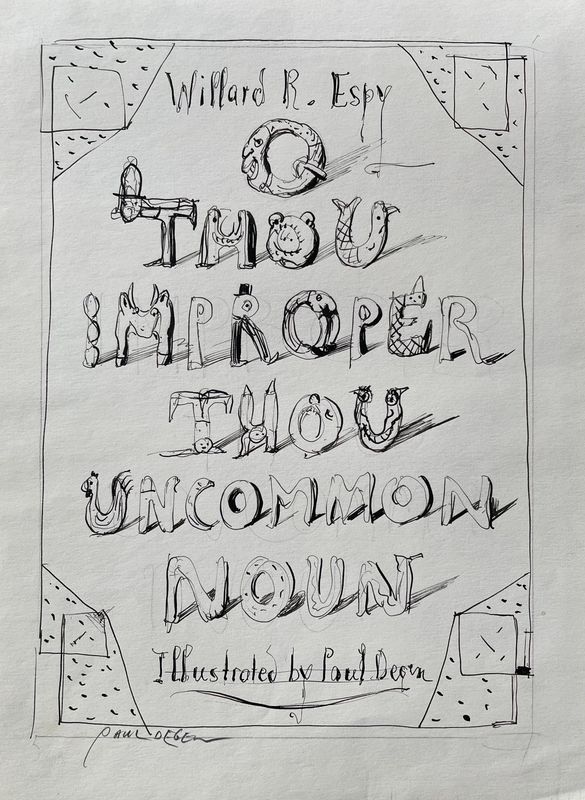 Willard R. Espy
O
THOU
IMPROPER
THOU
UNCOMMON
NOUN
Illustrated by Paul Degen
PAUL DEGEN